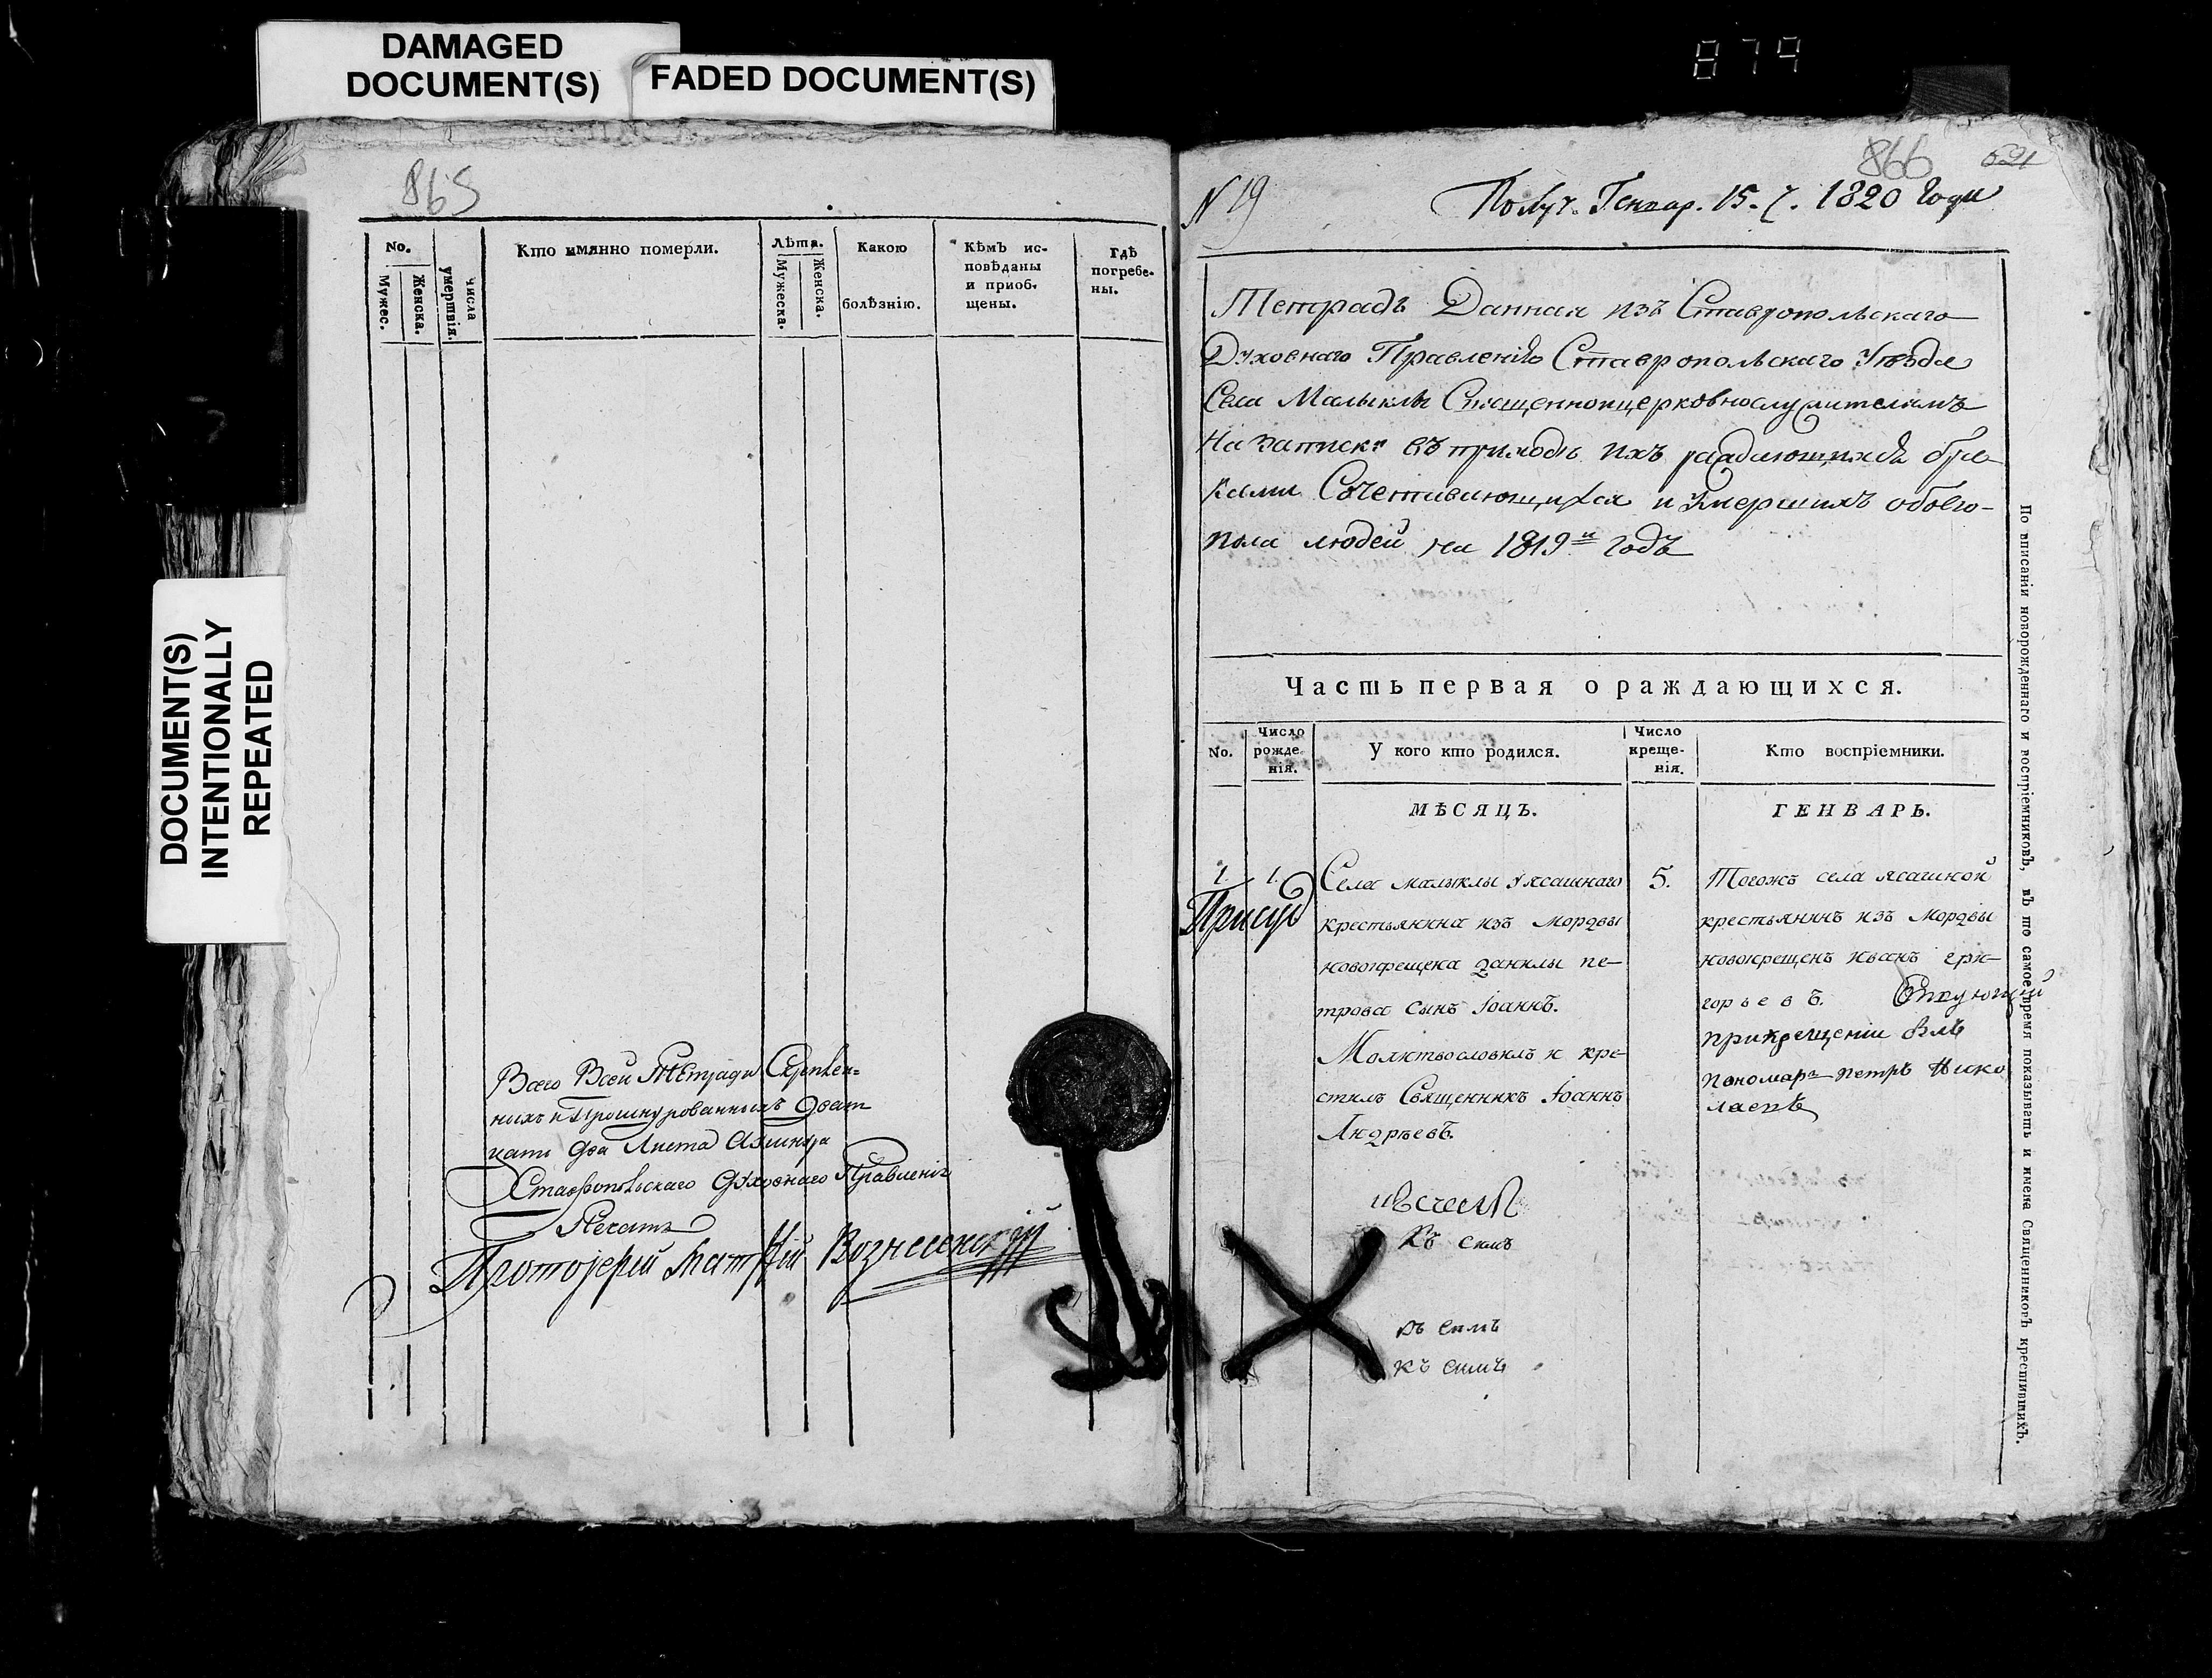 DAMAGED
DOCUMENT(S)
FADED DOCUMENT(S)
DOCUMENT(S)
INTENTIONALLY
REPEATED
879
865
No.
Мужес.
Женска.
числа
умертвія.
Кто имянно померли.
Лѣта.
Мужеска.
Женска.
Какою
болѣзнію.
Кѣмъ ис-
повѣданы
и приоб-
щены.
гдѣ
погребе-
ны.
Всего Всей Тетради Скрепълен=
ныхъ и Прошнурованныхъ Дват
цати два Листа
Ставропольскаго Духовнаго Правленія
Печать
Протоіерей Вознесенскій
866
N 19
Получ. Генвар. 15. 1820 Года
Тетрадь Данная изъ Ставропольскаго
Духовнаго Правленія Ставропольскаго Уѣзда
Села Малыклы Священноицерковнослужителямъ
На записку въ приходѣ ихъ раждающихся бра-
ками Сочетивающихся и Умершихъ обоего-
пола людей на 1819й годъ
Часть первая о раждающихся.
No.
Число
рожде-
нія.
У кого кто родился.
Число
креще-
нія.
Кто воспріемники.
МѢСЯЦЪ.
ГЕНВАРЬ.
1. 1.
Села малыклы у ясашнаго
крестьянина изъ мордвы
новокрещена данилы пе-
трова сынъ Іоаннъ.
Молитвословилъ и кре-
стилъ Священникъ Іоаннъ
Андрѣевъ.
5.
Тогожъ села ясашной
крестьянинъ изъ мордвы
новокрещенъ иванъ гри-
горьевъ.
прикрещеніи былъ
пономарь петръ Нико
лаевъ
Къ симъ
къ симъ
По вписаніи новорожденнаго и воспріемниковъ, въ то самое время показывать и имена Священниковъ крестившихъ.